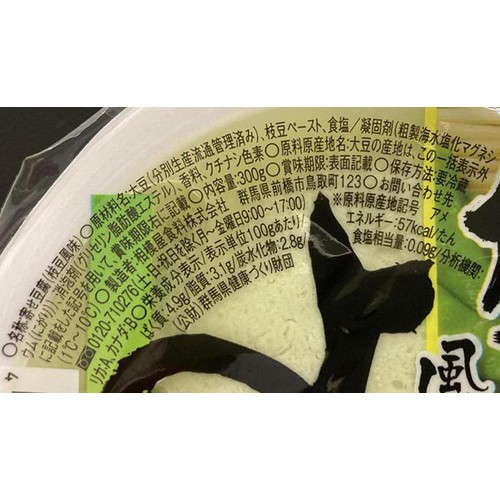 ○名称:寄せ豆腐(枝豆風味)○原材料名:大豆(分別生産流通管理済み)、枝豆ペースト、食塩/凝固剤(粗製海水塩化マグネシ
ウム(にがり))、消泡剤(グリセリン脂肪酸エステル)、香料、クチナシ色素○原料原産地名:大豆の産地は、この一括表示外
に記載○内容量:300g○賞味期限:表面記載○保存方法:要冷蔵
(1℃～10℃)
○製造者:相模屋食料株式会社 群馬県前橋市鳥取町123○お問い合わせ先
0120-710276(土・日・祝日除く/月～金曜日9:00～17:00) ※原料原産地記号 アメ
リカ:A、カナダ:B ○栄養成分表示/表示単位(100gあたり) エネルギー:57kcal/たん
ぱく質:4.9g/脂質:3.1g/炭水化物:2.8g/食塩相当量:0.09g/分析機関:
(公財)群馬県健康づくり財団
風